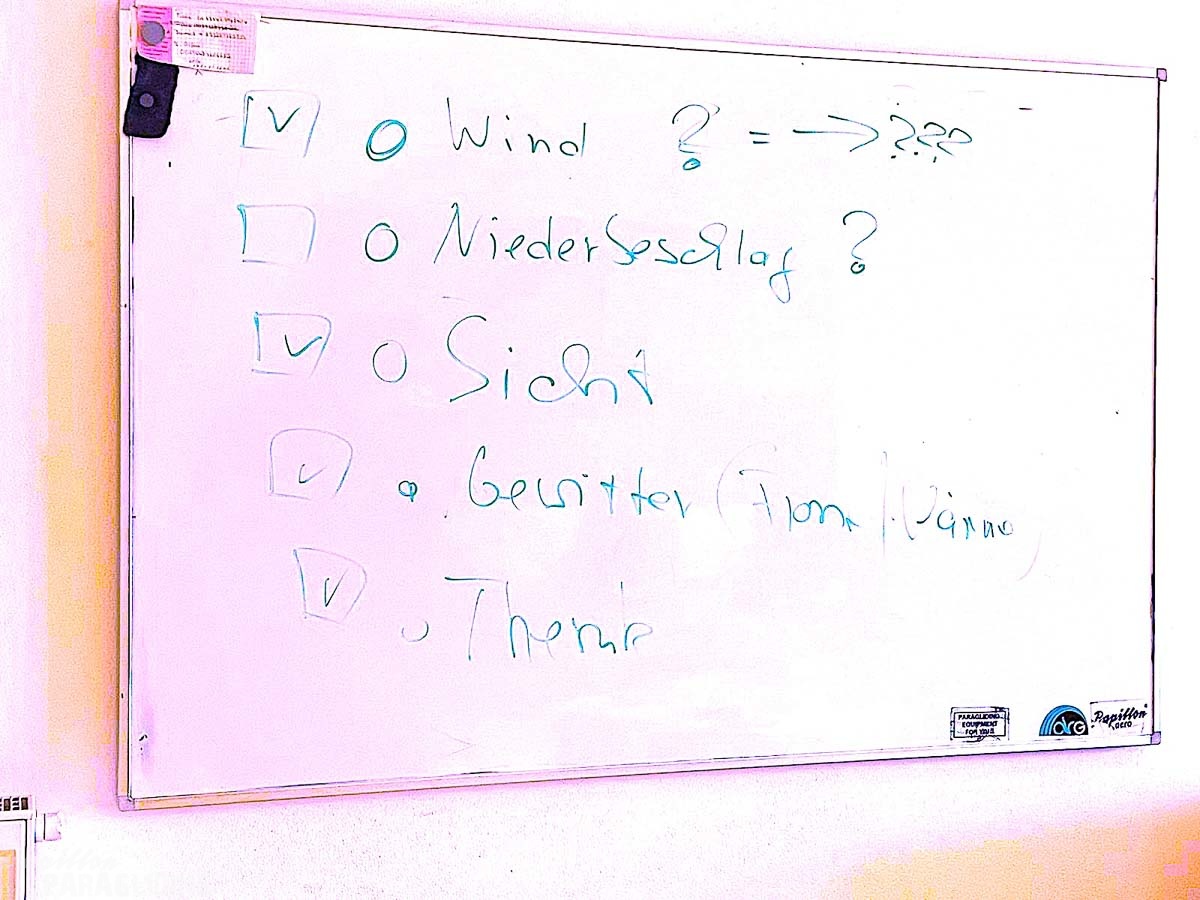 V o Wind ? = → ???
o Niederbeschlag ?
V o Sicht
V o Gewitter (Front / Wärme)
V o Thermik
PARAGLIDING
EQUIPMENT
FOR YOU!!
Papillon
aero